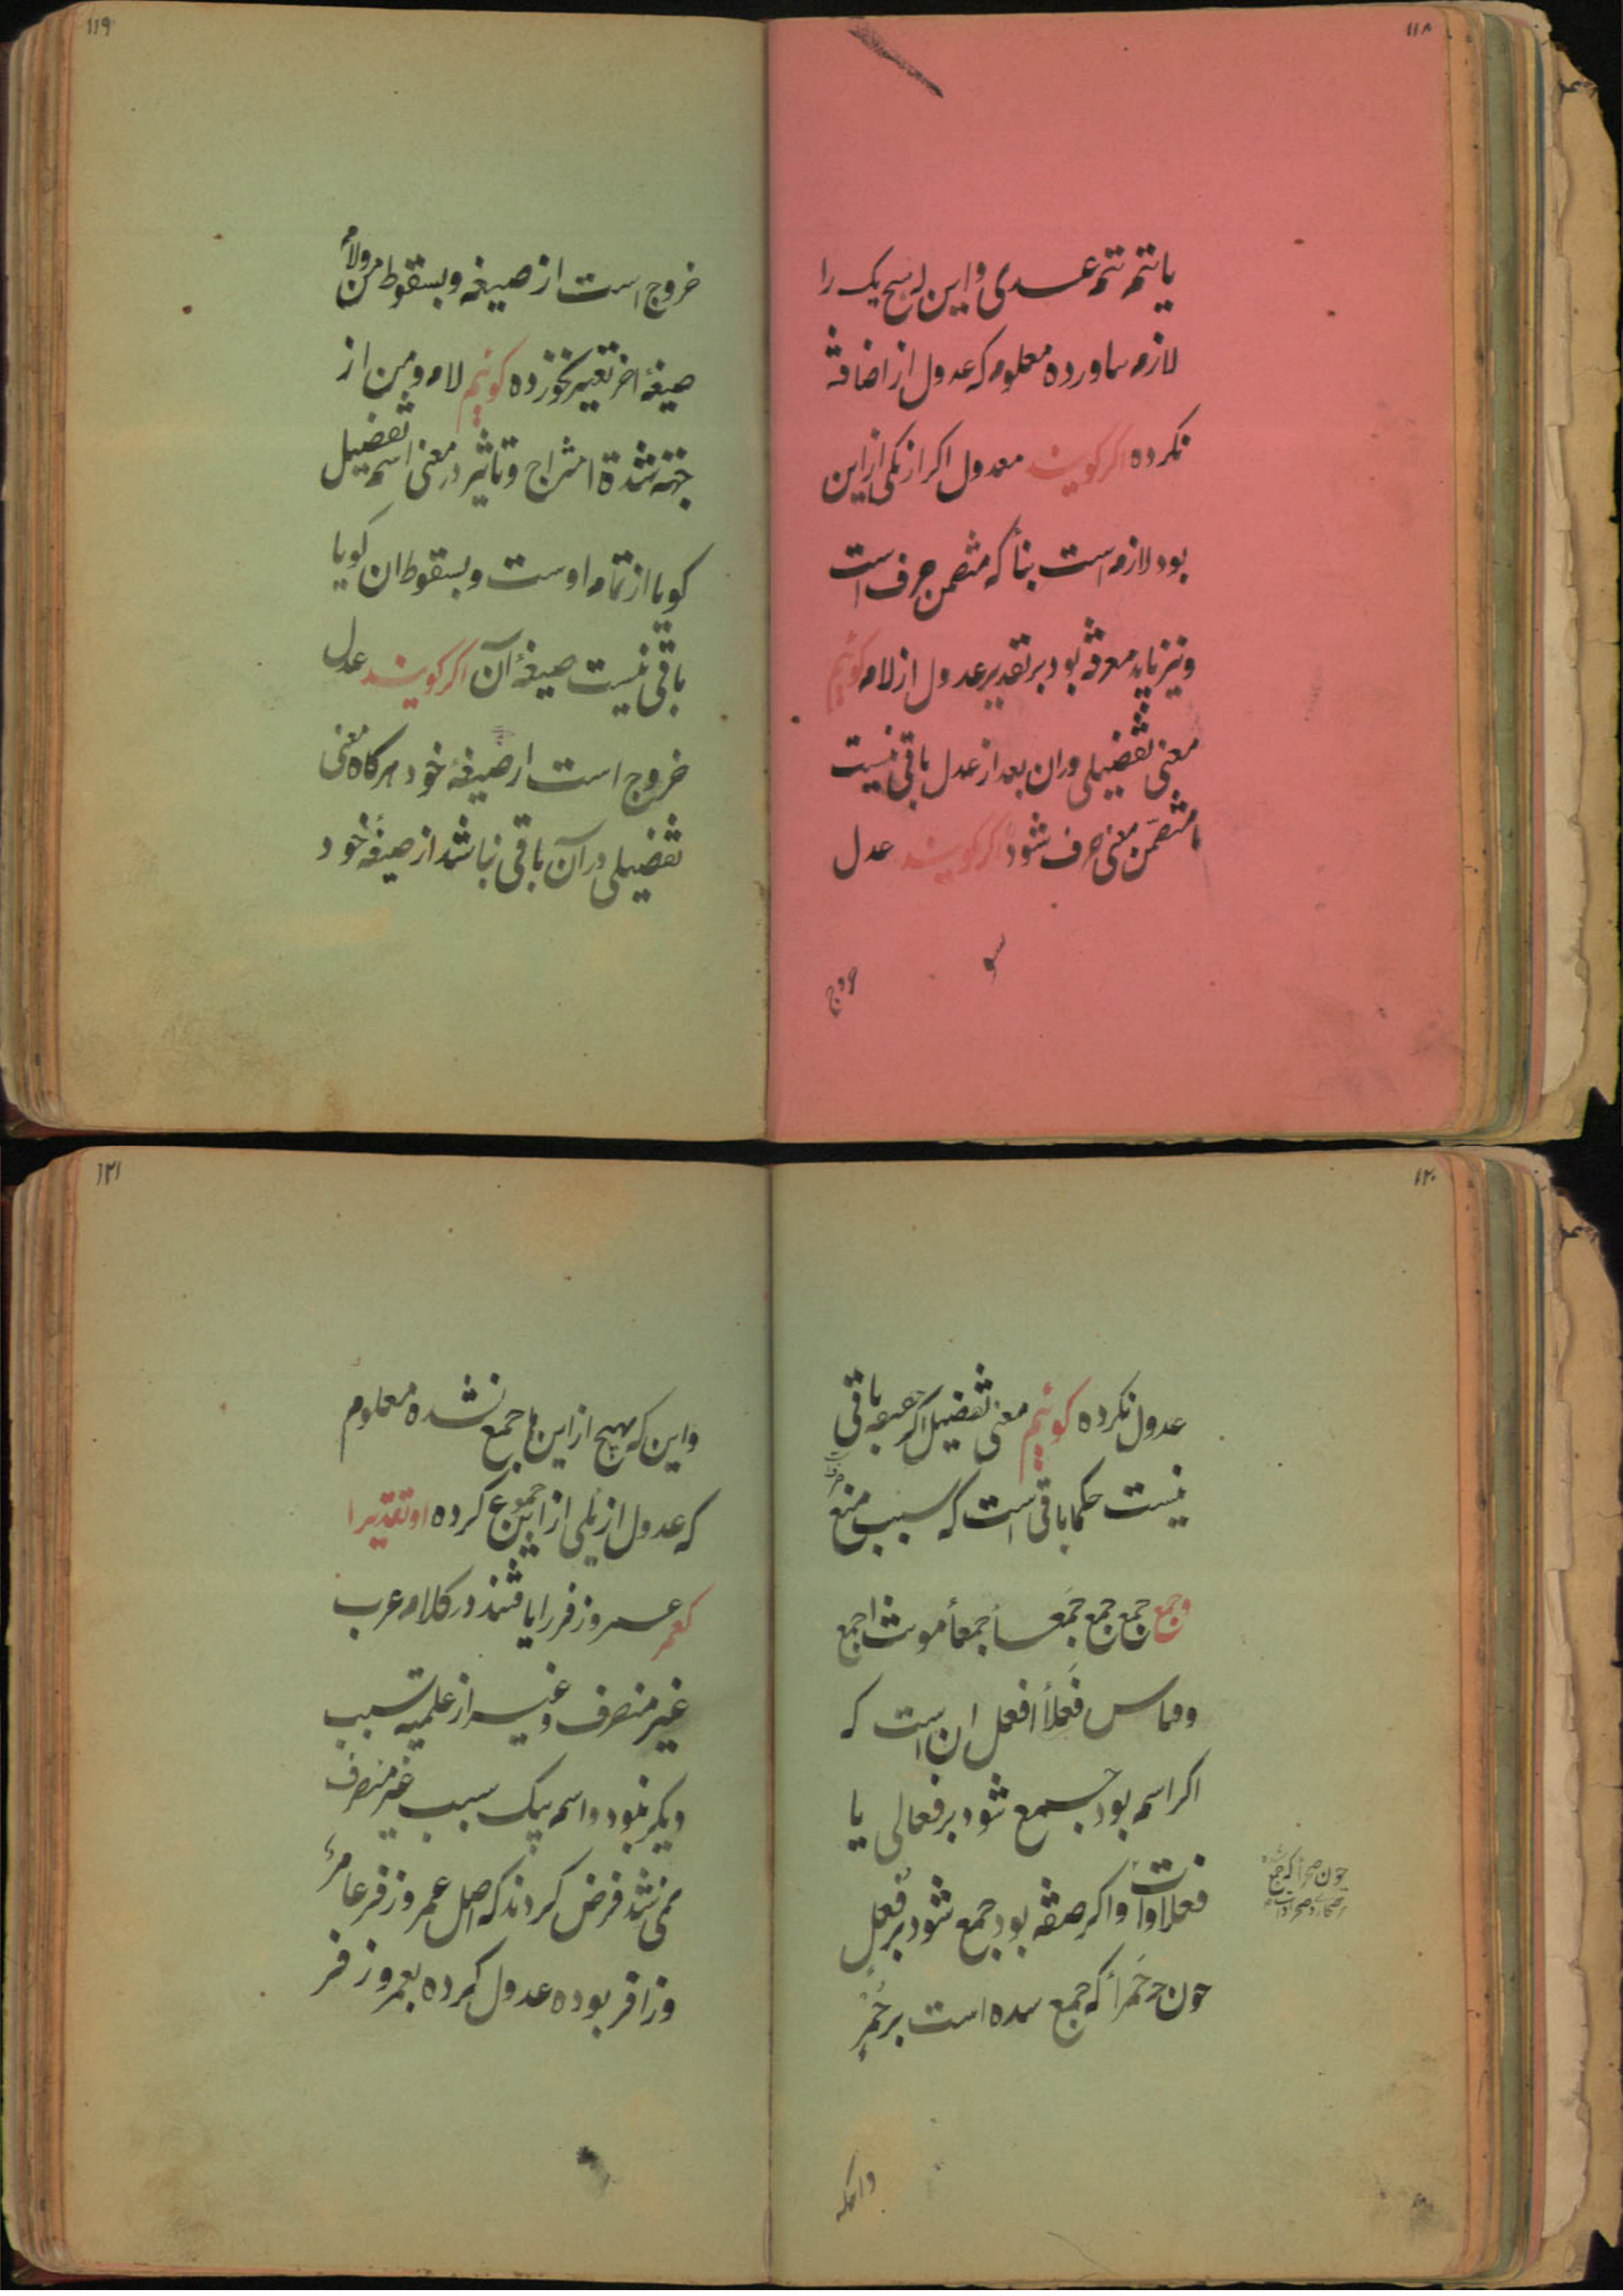 ١١٨
یا تتم تتم عدی و این هیچ یک را
لازم نیاورده معلوم که عدول از اضافة
نکرده اکر کویند معدول اکر از یکی ازین
بود لازم است بنأ که متضمن حرف است
و نیز باید معرفه بود بر تقدیر عدول از لام کوئیم
معنی تفضیلی دران بعد از عدل باقی نیست
تا متضمّن معنی حرف شود اکر کویند عدل
١١٩
خروج است از صیغه و بسقوط من و لام
صیغهٔ اخر تغییر نخورده کوئیم لام و من از
جهة شدة امتزاج و تاثیر در معنی اسم تفضیل
کویا از تمام اوست و بسقوط ان کویا
باقی نیست صیغهٔ آن اکر کویند عدل
خروج است از صیغهٔ خود هرکاه معنی
تفضیلی در آن باقی نباشد از صیغهٔ خود
١٢٠
عدول نکرده کوئیم معنی تفضیل اکرچه باقی
نیست حکما باقی است که سبب منع
وجمع جمع جمع جمعأ جمعأ مونث اجمع
و قیاس فَعلأ افعل ان است که
اکر اسم بود جمع شود بر فعالی یا
فعلاوات و اکر صفة بود جمع شود بر فُعل
چون حَمرأ که جمع شده است بر حُمْر
چون صحرأ که جمع
١٢١
و این که هیچ از این ها جمع نشده معلوم
که عدول از یکی از این جموع کرده او تقدیرا
کعمر عمر و زفر را یافتند در کلام عرب
غیر منصرف و غیر از علمیه سبب
دیکر نبود و اسم بیک سبب غیر منصرف
نمی شد فرض کردند که اصل عمر و زفر عامر
و زافر بوده عدول کرده بعمر و زفر